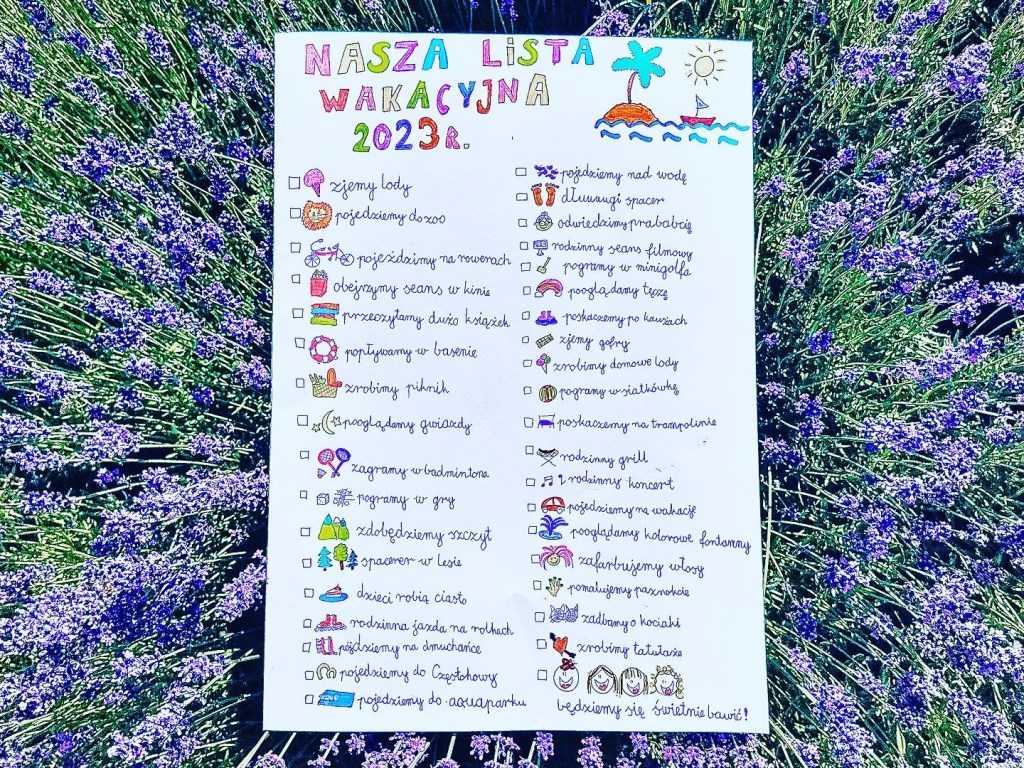 NASZA LiSTA
WAKACYJNA
2023R.
zjemy lody
pojedziemy do zoo
pojeździmy na rowerach
obejrzymy seans w kinie
przeczytamy dużo książek
popływamy w basenie
zrobimy piknik
pooglądamy gwiazdy
zagramy w badmintona
pogramy w gry
zdobędziemy szczyt
spacerer w lesie
dzieci robią ciasto
rodzinna jazda na rolkach
pójdziemy na dmuchańce
pojedziemy do Częstohowy
pojedziemy do aquaparku
pojedziemy nad wodę
dłuuuugi spacer
odwiedzimy prababcię
rodzinny seans filmowy
pogramy w minigolfa
pooglądamy tęczę
poskaczemy po kauszach
zjemy gofry
zrobimy domowe lody
pogramy w siatkówkę
poskaczemy na trampolinie
rodzinny grill
rodzinny koncert
pojedziemy na wakacje
pooglądamy kolorowe fontanny
zafarbujemy włosy
pomalujemy paznokcie
zadbamy o kociaki
zrobimy tatuaże
będziemy się świetnie bawić!